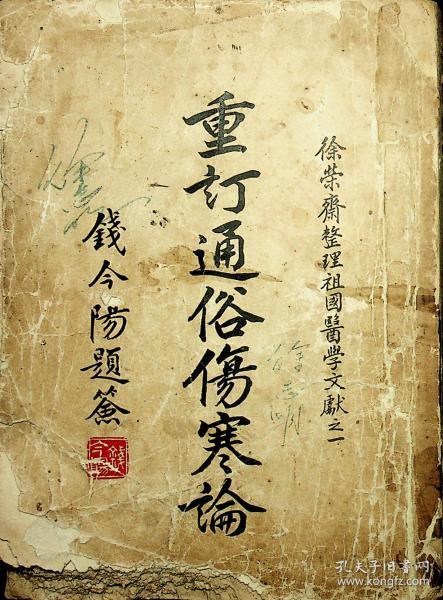 徐榮齋整理祖國醫學文獻之一
重訂通俗傷寒論
錢今陽題簽
孔夫子旧书网
www.kongfz.com